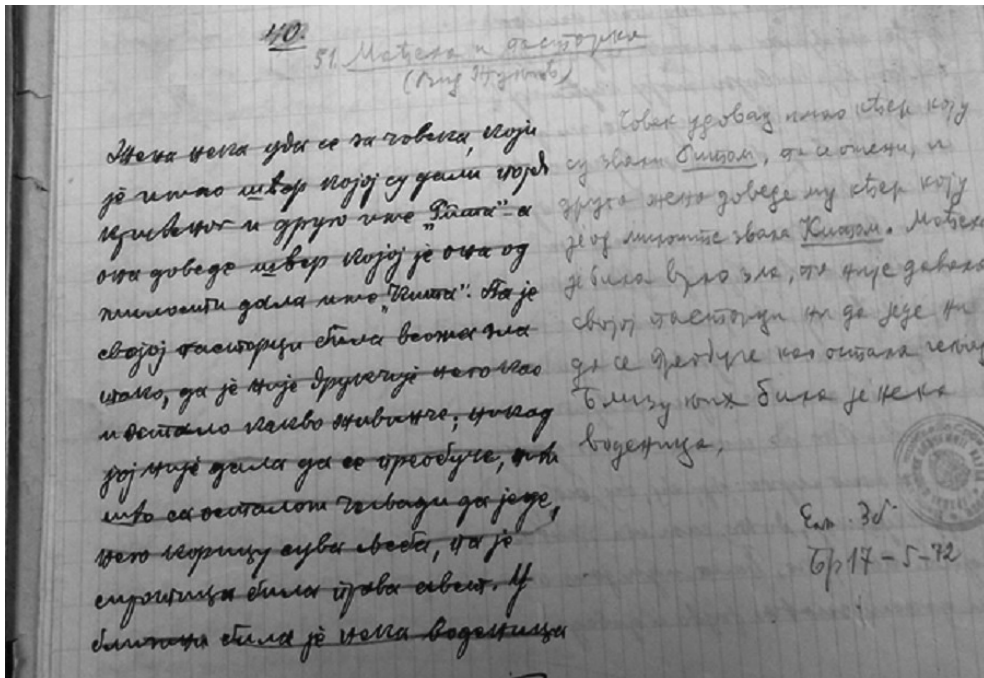 40.
51. Маћеха и пасторка
(Вид Жуњов)
Жена нека уда се за човека, који
је имао шћер којој су дали поред
крштеног и друго име „Бита“ а
она доведе шћер којој је она од
милошти дала име „Кита“. Та је
својој пасторци била веома зла
тако, да је није друкчије него као
и остало какво живинче; никад
јој није дала да се преобуче, нити
што са осталом чељади да једе,
него корицу сува љеба, па је
сиротица била права авет. У
близини била је нека воденица
Човек удовац имао кћер коју
су звали Битом, па се ожени, и
друга жена доведе му кћер коју
је од милоште звала Китом. Маћеха
је била врло зла, па није давала
својој пасторци ни да једе ни
да се преобуче као остала чељад
Близу њих била је нека
воденица,
Етн. Зб.
Бр 17-5-72